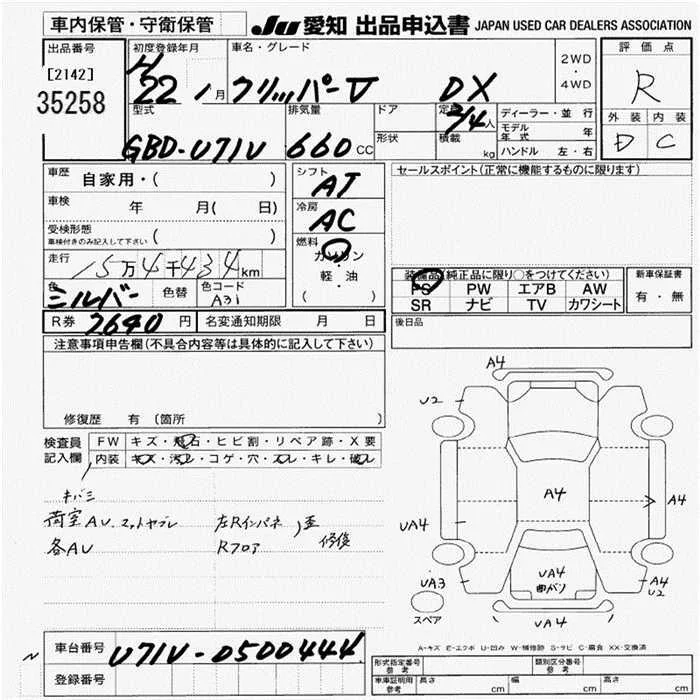 車内保管・守衛保管
JU 愛知 出品申込書 JAPAN USED CAR DEALERS ASSOCIATION
出品番号
[2142]
35258
初度登録年月
H
22 1月
車名・グレード
クリッパーV DX
2WD
・
4WD
評価点
R
外装 内装
D C
型式
GBD-U71V
排気量
660 cc
ドア
形状
定員
2/4人
積載
kg
ディーラー・並行
モデル年式 年
ハンドル 左・右
車歴
自家用・( )
車検
年 月( 日)
受検形態
車検付きのみ記入して下さい ( )
走行
15万4千434km
色
シルバー
色替
色コード
A31
R券 7640 円
名変通知期限 月 日
シフト
AT
冷房
AC
燃料
ガソリン
・
軽・油
( )
セールスポイント(正常に機能するものに限ります)
装備品(純正品に限り○をつけてください)
PS PW エアB AW
SR ナビ TV カワシート
新車保証書
有・無
後日品
注意事項申告欄(不具合内容等は具体的に記入して下さい)
修復歴 有 (箇所 )
検査員
記入欄
FW キズ・飛石・ヒビ割・リペア跡・X要
内装 キズ・汚れ・コゲ・穴・スレ・キレ・破れ
キバミ
荷室AU.マットヤブレ
各AU
左Rインパネ
Rフロア
歪
修復
A4
U2
A4
A4
UA4
UA3
UA4
曲がり
A4
U2
UA4
スペア
A-キズ E-エクボ U-凹み W-補修跡 S-サビ C-腐食 XX-交換済
車台番号 U71V-0500444
登録番号
形式指定番号
類別区分番号
車庫証明用参考 長さ cm 幅 cm 高さ cm